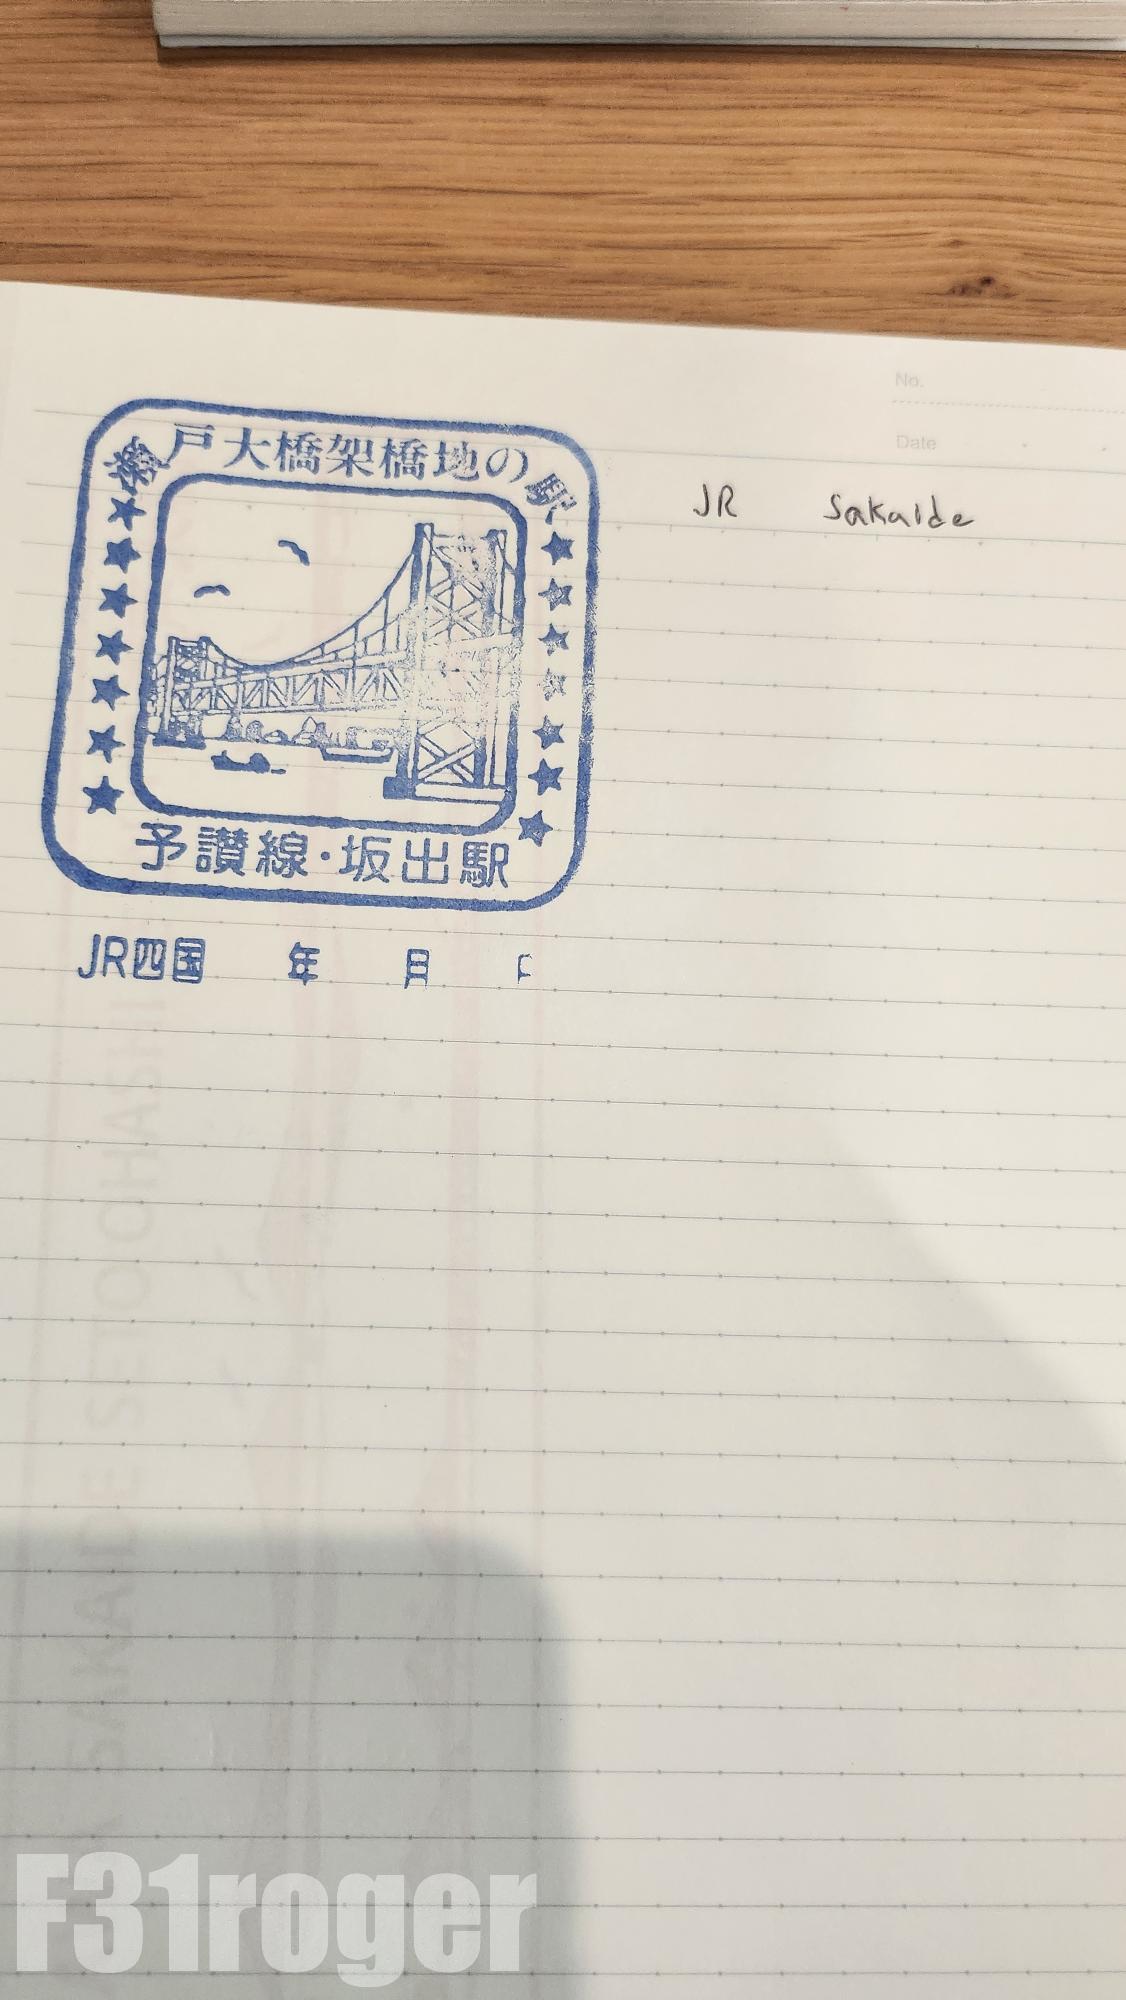 No.
Date
瀬戸大橋架橋地の駅
JR Sakaide
予讃線・坂出駅
JR四国 年 月
SAKAIDE SETO OHASHI
F31roger